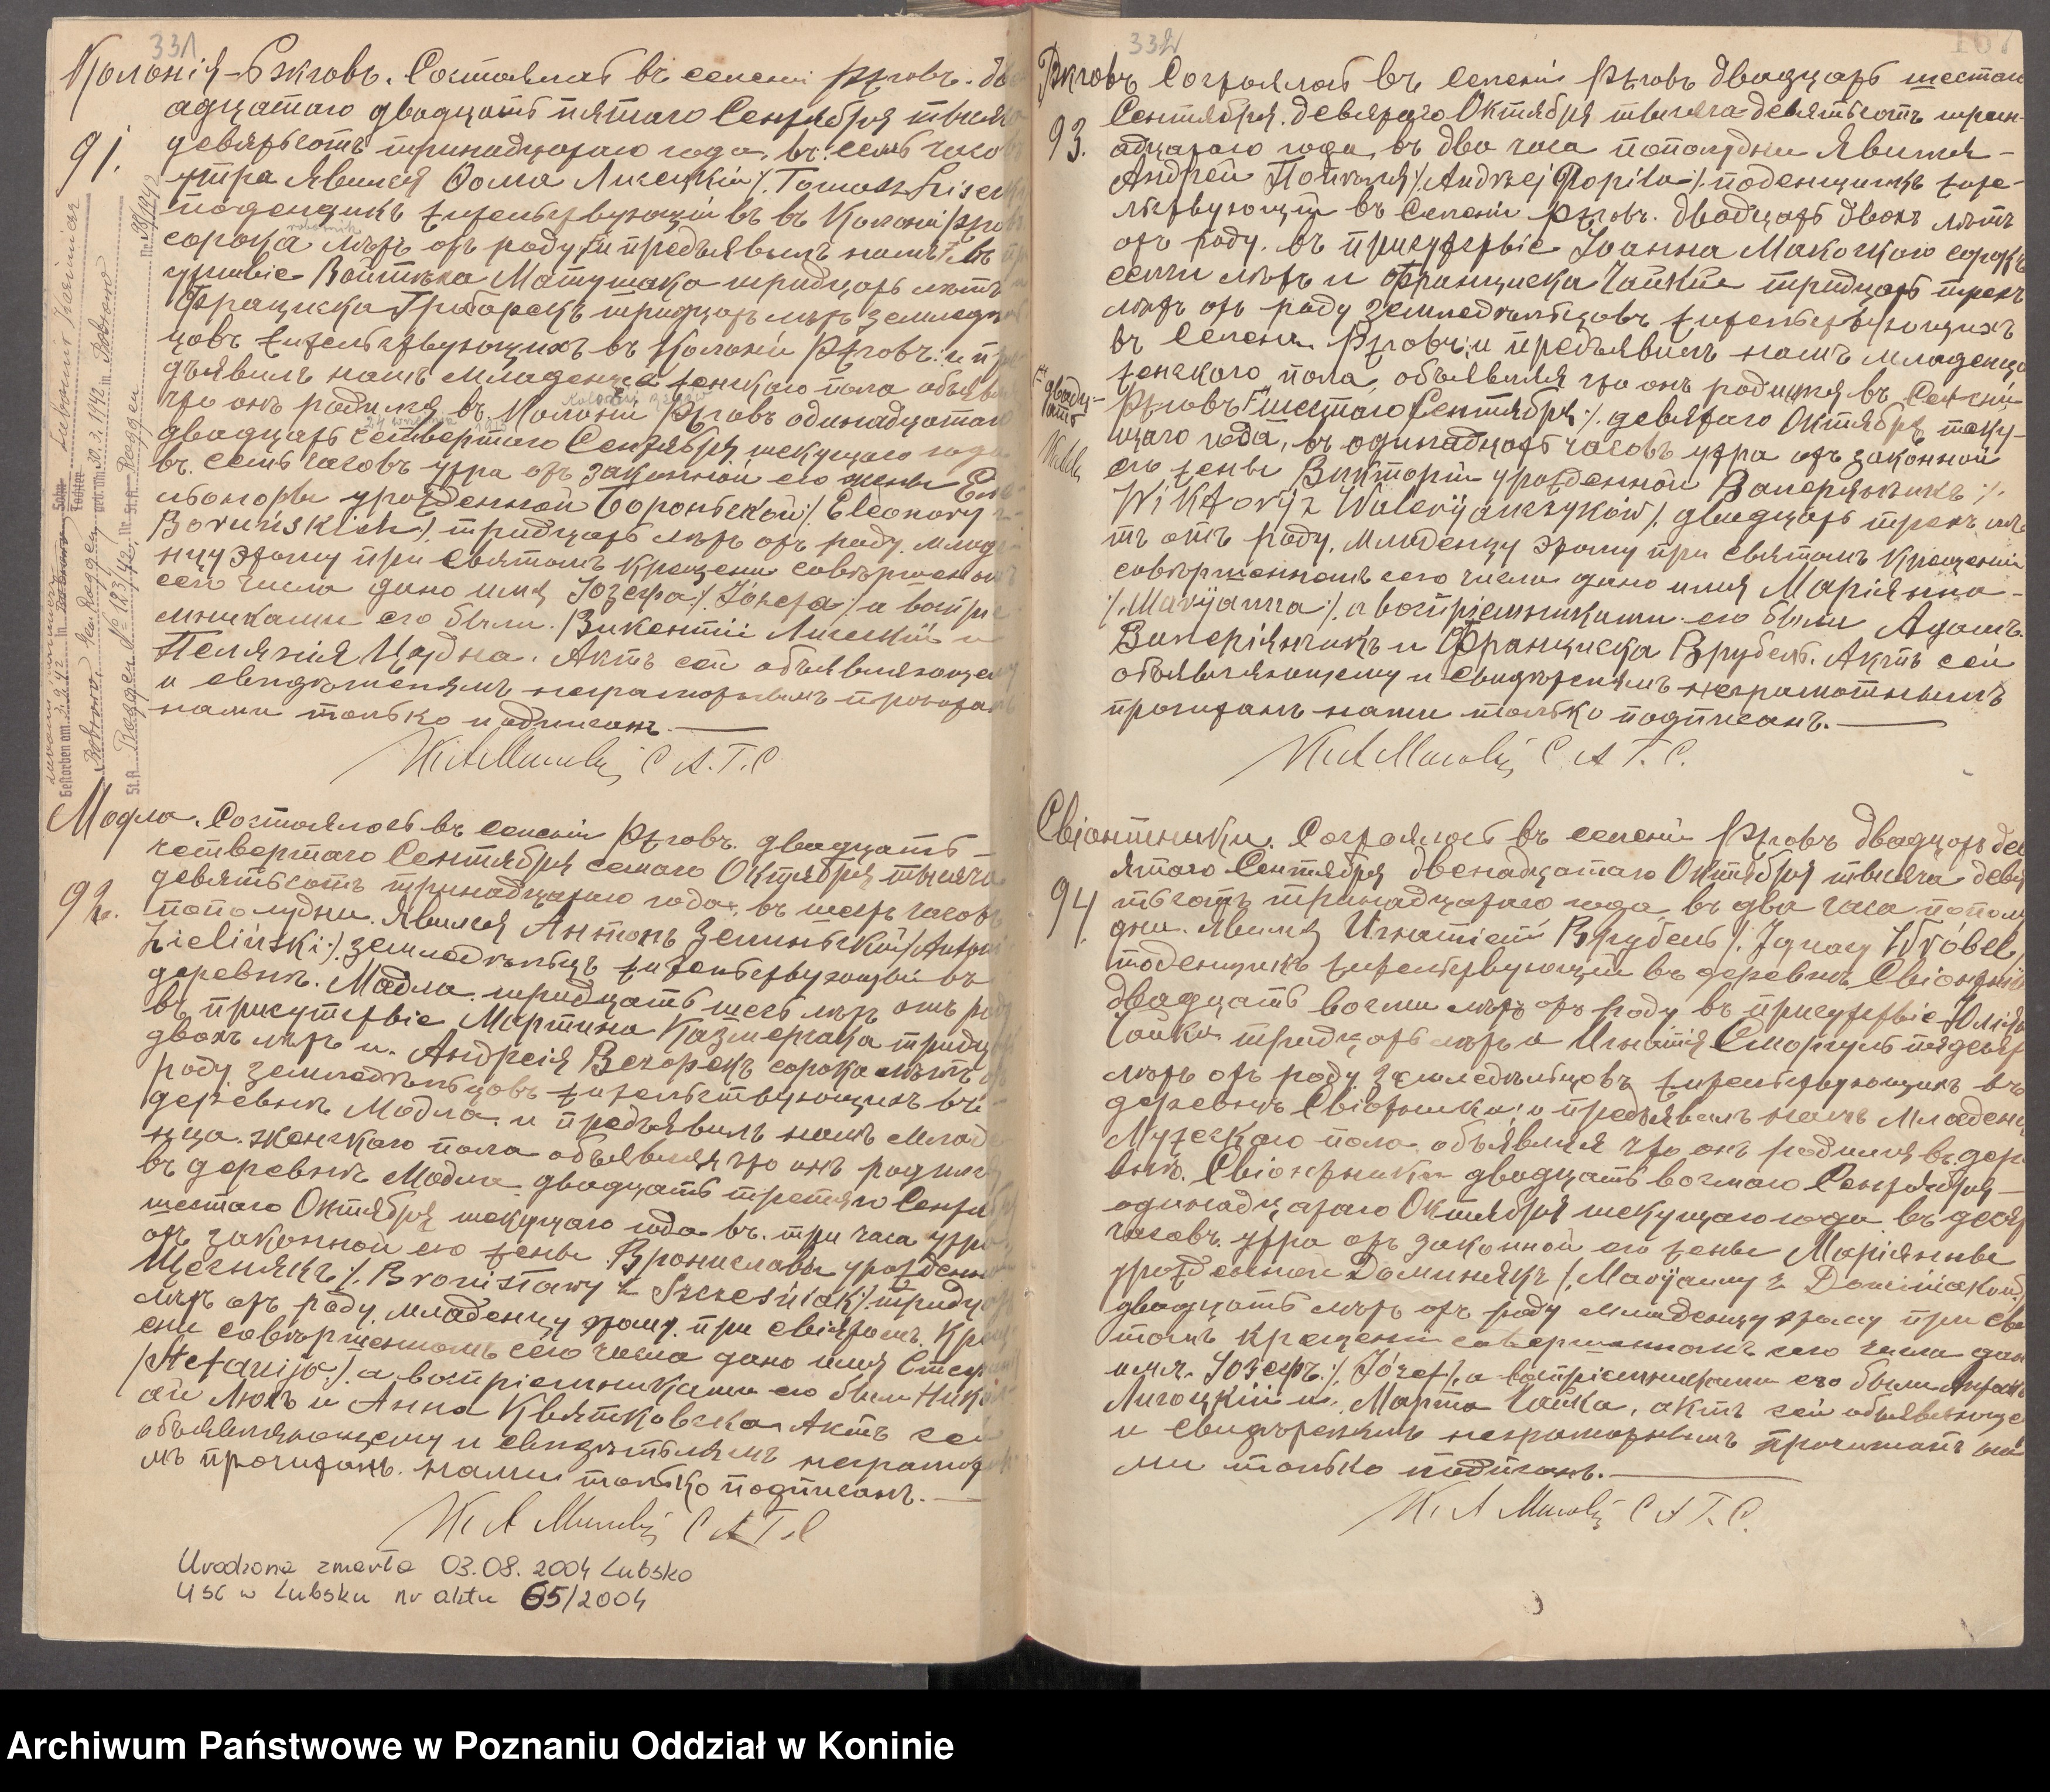 331
Колонія-Ржговъ. Состоялось въ селеніи Ржговъ. дв
адцатаго двадцать пятаго Сентября тысяча
91.
девятьсотъ тринадцатаго года, въ семь часов
утра Явился Ѳома Лисецкій /. Tomasz Lisecki
поденщикъ жительствующій въ въ Колоніи Ржгов
robotnik
сорока лѣтъ отъ роду
уствіе Войтѣха Матушака тридцать лѣтъ
Францишка Грабарекъ тридцать лѣтъ земледѣ
цовъ жительствующихъ въ Колоніи Ржговъ: и пре
дъявилъ намъ младенца женскаго пола объяви
что онъ родился въ Колоніи Ржговъ одинадцатаго
двадцать четвертаго Сентября текущаго года
въ семь часовъ утра отъ законной его жены Еле
оноры урожденной Бороньской /. Eleonory z
Boruńskich /. тридцать лѣтъ отъ роду. младе
нцу этому при Святомъ Крещеніи совершеномъ
сего числа дано имя Іозефа /. Józefa ./ а воспріе
мниками его были. Викентій Лисецкій и
Пелягія Цадна. Актъ сей объявляющему
и свидѣтелямъ неграмотнымъ прочитан
нами только подписанъ.
С. А. Г. С.
Модла. Состоялось въ селеніи Ржговъ. двадцать
четвертаго Сентября седмаго Октября тысяча
92.
девятьсотъ тринадцатаго года, въ шесть часовъ
пополудни. Явился Антонъ Зелиньскій /. Antoni
Zieliński ./ земледѣлецъ жительствующій въ
деревнѣ. Модла. тридцать шесть лѣтъ отъ роду
въ присутствіе Мартина Казмерчака тридца
двохъ лѣтъ и. Андрея Вечорекъ сорока лѣтъ от
роду земледѣльцовъ жительствующихъ въ
деревнѣ Модла. и предъявилъ намъ младе
нца. женскаго пола объявляя что онъ родился
въ деревнѣ Модла двадцать третяго Сентяб
шестаго Октября текущаго года въ. три часа утра.
отъ законной его жены Брониславы урожденно
Щеснякъ /. Bronisławy z Szcześniak /. тридца
лѣтъ отъ роду младенцу этому при Святомъ. Крещ
ени совершеномъ сего числа дано имя Стеф
/Stefanija:/ а воспріемниками его были Никол
ай Люкъ и Анна Квятковска Актъ сей
объявляющему и свидѣтелямъ неграмотн
мъ прочитанъ. нами только подписанъ.
С А Г. С
Urodzona zmarła 03.08.2004 Lubsko
USC w Lubsku nr aktu 65/2004
332
167
Ржговъ Состоялось въ Селеніи Ржговъ двадцать шестаго
Сентября. девятаго Октября тысяча девятьсотъ трин-
93.
адцатаго года, въ два часа пополудни Явился -
Андрей Попиля /. Andrzej Popila ./ поденщикъ жите-
льствующій въ Селеніи Ржговъ. двадцать двохъ лѣтъ
отъ роду. въ присутствіе Іоанна Макоцкаго сорокъ
семи лѣтъ и Францишка Чайки тридцать трехъ
лѣтъ отъ роду земледѣльцовъ жительствующихъ
въ Селеніи Ржговъ; и предъявилъ намъ младенца
женскаго пола, объявляя что онъ родился въ Селеніи
двадцать
Ржговъ шестаго Сентября ./. девятаго Октября теку-
щаго года, въ одинадцать часовъ утра отъ законной
его жены Викторіи урожденной Валеріянчикъ /.
Wiktoryi z Waleryjańczyków /. двадцать трехъ лѣ
тъ отъ роду. Младенцу этому при Святомъ Крещеніи
совершенномъ сего числа дано имя Маріянна -
/. Maryjanna ./ а воспріемниками его были Адамъ
Валеріянчикъ и Франциска Врубель. Актъ сей
объявляющему и Свидѣтелямъ неграмотнымъ
прочитанъ нами только подписанъ.
С. А Г. С.
Свіонтники. Состоялось въ селеніи Ржговъ двадцать дев
ятаго Сентября двенадцатаго Октября тысяча девя
94.
тьсотъ тринадцатаго года въ два часа пополу
дни. Явился Игнатій Врубель /. Ignacy Wróbel
поденщикъ жительствующій въ деревнѣ Свіонтник
двадцать восми лѣтъ отъ роду въ присутствіе Юлія
Чайки тридцать лѣтъ и Игнатія Сморгуль пядесят
лѣтъ отъ роду земледѣльцовъ жительствующихъ въ
деревнѣ Свіонтники; и предъявилъ намъ младенца
Мужескаго пола объявляя что онъ родился въ дер
внѣ. Свіонтники двадцать восмаго Сентября -
одинадцатаго Октября текущаго года въ десят
часовъ утра отъ законной его жены Маріянны
урожденной Доминякъ /. Maryjanny z Dominiaków
двадцать лѣтъ отъ роду младенцу этому при Свя
томъ Крещени совершенномъ сего числа дано
имя. Іозефъ. /. Józef /. а воспріемниками его были
Лисецкій и. Марта Чайка, актъ сей объявляюще
и Свидѣтелямъ неграмотнымъ прочитанъ на
ми только подписанъ.
С А Г. С.
Archiwum Państwowe w Poznaniu Oddział w Koninie